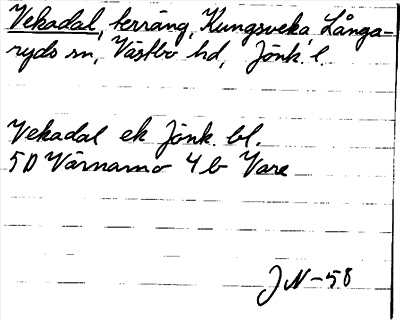 Vekadal, terräng, Kungsveka, Långa-
ryds sn, Västbo hd, Jönk. l.
Vekadal ek Jönk. bl.
5D Värnamo 4b Vare
JN-58